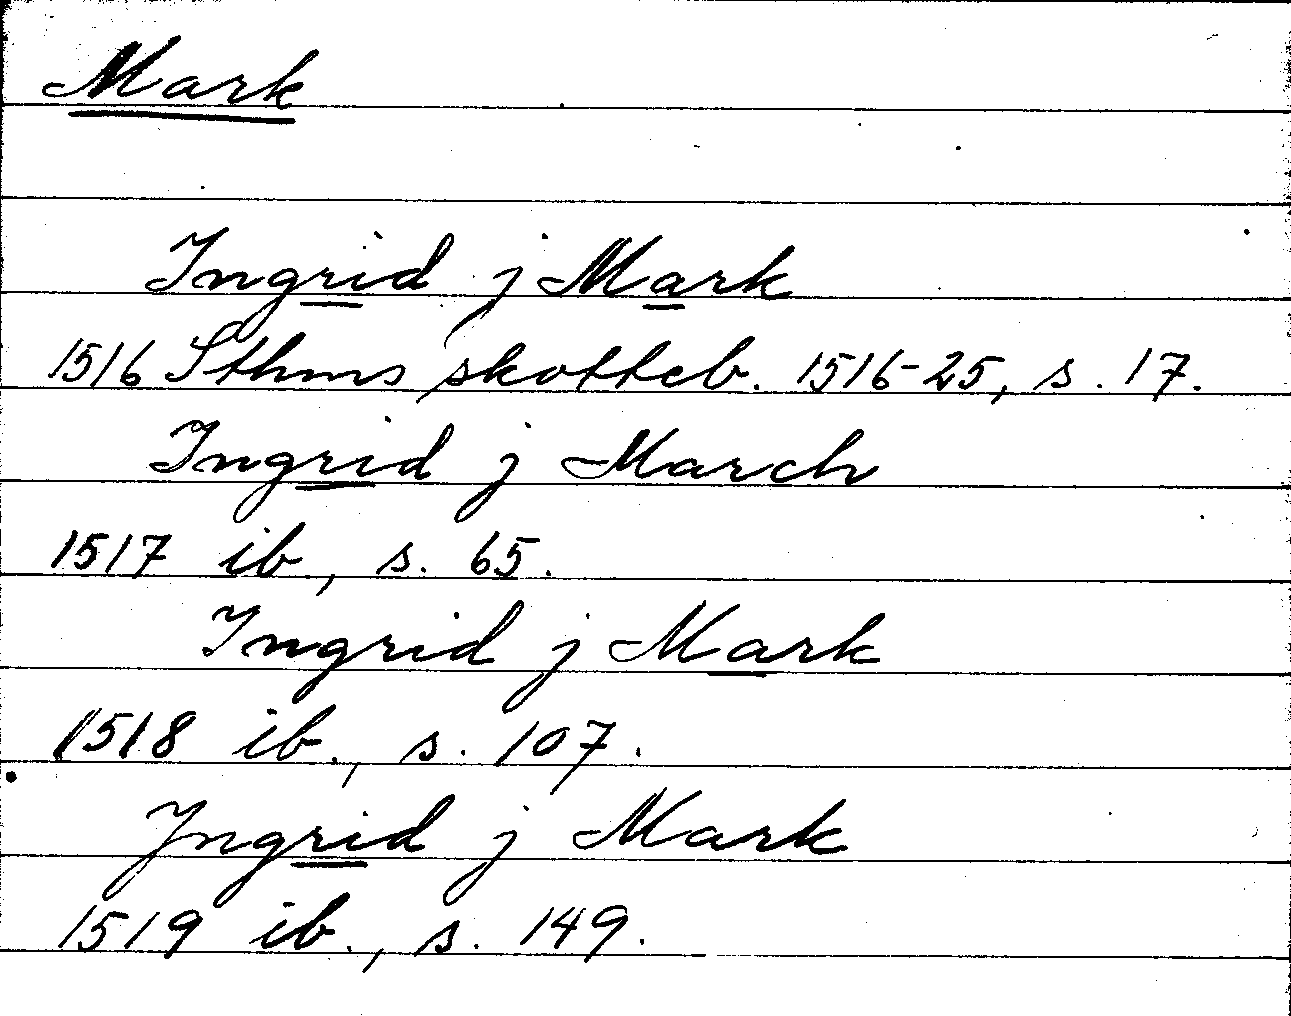 Mark
Ingrid j Mark
1516 Sthms skotteb. 1516-25, s. 17.
Ingrid j March
1517 ib., s. 65.
Ingrid j Mark
1518 ib., s. 107.
Jngrid j Mark
1519 ib., s. 149.